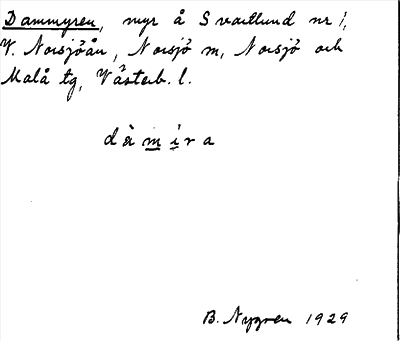 Dammyren, myr å Svartlund nr 1,
V. Norsjöån, Norsjö m, Norsjö och
Malå tg, Västerb. l.
dàmi̱ra
B. Nygren 1929